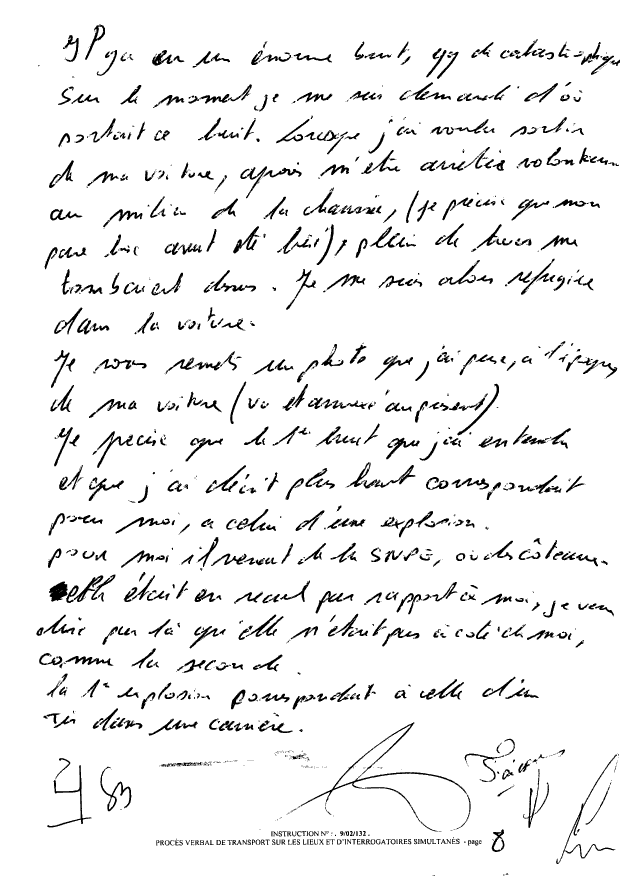 Il y a eu un énorme bruit, qq de catastrophique
Sur le moment je me suis demandé d'où
sortait ce bruit. Lorsque j'ai voulu sortir
de ma voiture, après m'être arrêtée
au milieu de la chaussée, (je précise que mon
pare brise avait été brisé), plein de trucs me
tombaient dessus. Je me suis alors refugiée
dans la voiture.
Je vous remets un photo que j'ai prise, à l'époque
de ma voiture (vu et annexé au présent).
Je précise que le 1er bruit que j'ai entendu
et que j'ai décrit plus haut correspondait
pour moi, a celui d'une explosion.
pour moi il venait de la SNPE, ou des côteaux.
elle était en recul par rapport à moi, je veux
dire par là qu'elle n'était pas à coté de moi,
comme la seconde.
la 1e explosion correspondait à celle d'un
Tir dans une carrière.
INSTRUCTION N° : . 9/02/132 .
PROCÈS VERBAL DE TRANSPORT SUR LES LIEUX ET D'INTERROGATOIRES SIMULTANÉS - page 8